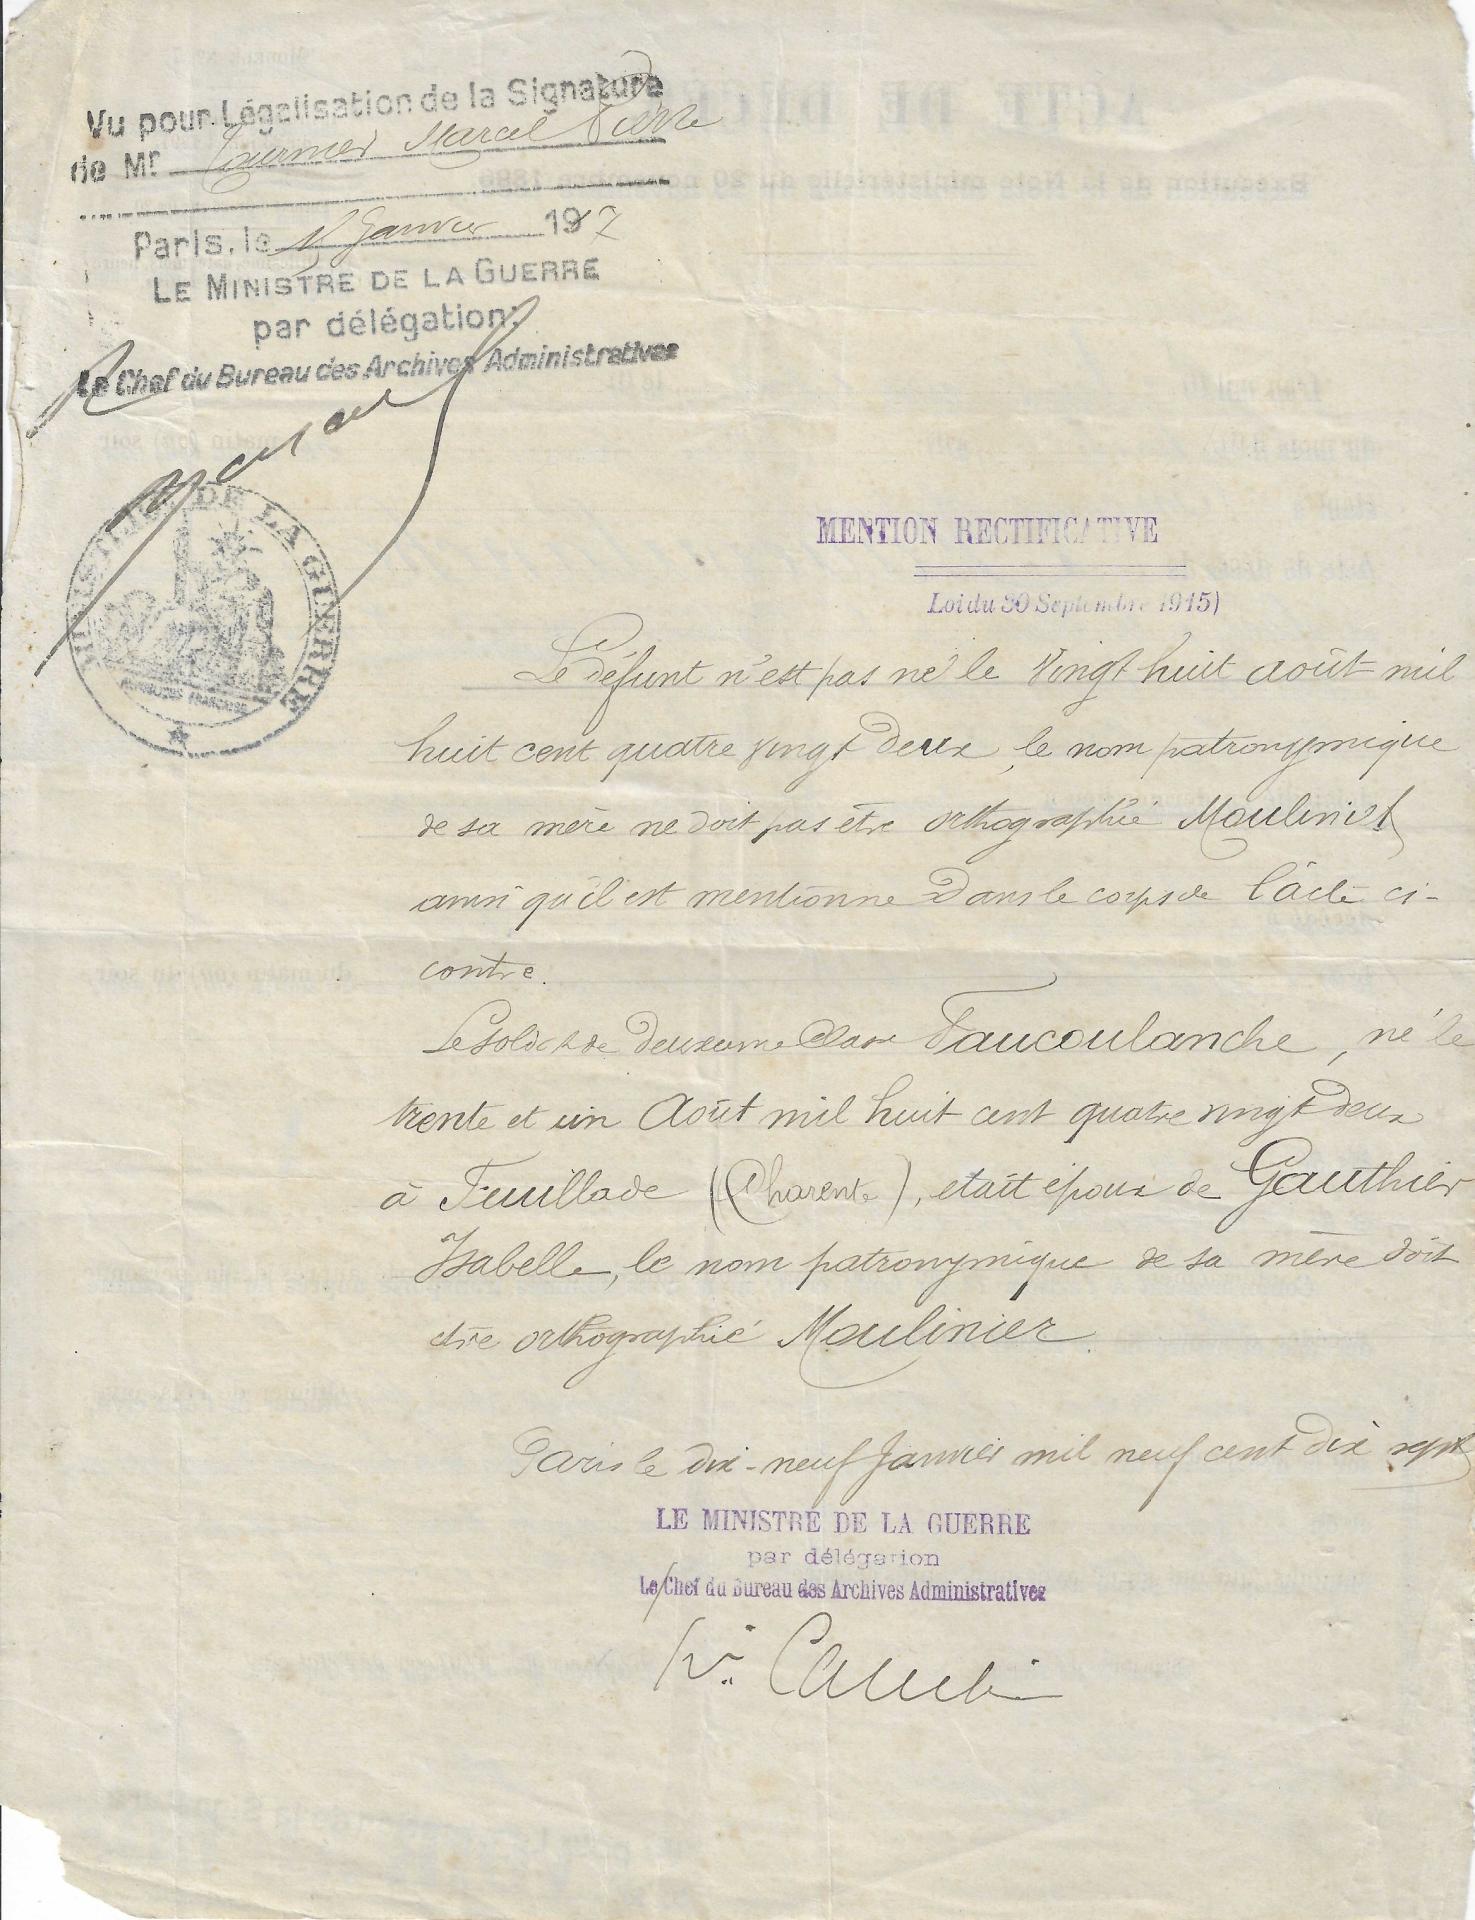 Vu pour Légalisation de la Signature
de Mr Tournier Marcel Pierre
Paris, le Janvier 1917
LE MINISTRE DE LA GUERRE
par délégation:
Le Chef du Bureau des Archives Administratives
MINISTÈRE DE LA GUERRE
RÉPUBLIQUE FRANÇAISE
MENTION RECTIFICATIVE
Loi du 30 Septembre 1915)
Le défunt n'est pas né le vingt huit août mil
huit cent quatre vingt deux, le nom patronymique
de sa mère ne doit pas être orthographié Moulinet
ainsi qu'il est mentionné dans le corps de l'acte ci-
contre.
Le soldat de deuxième classe Faucoulanche, né le
trente et un Août mil huit cent quatre vingt deux
à Feuillade (Charente), était époux de Gauthier
Isabelle, le nom patronymique de sa mère doit
être orthographié Moulinier.
Paris le dix-neuf Janvier mil neuf cent dix sept
LE MINISTRE DE LA GUERRE
par délégation
Le Chef du Bureau des Archives Administratives